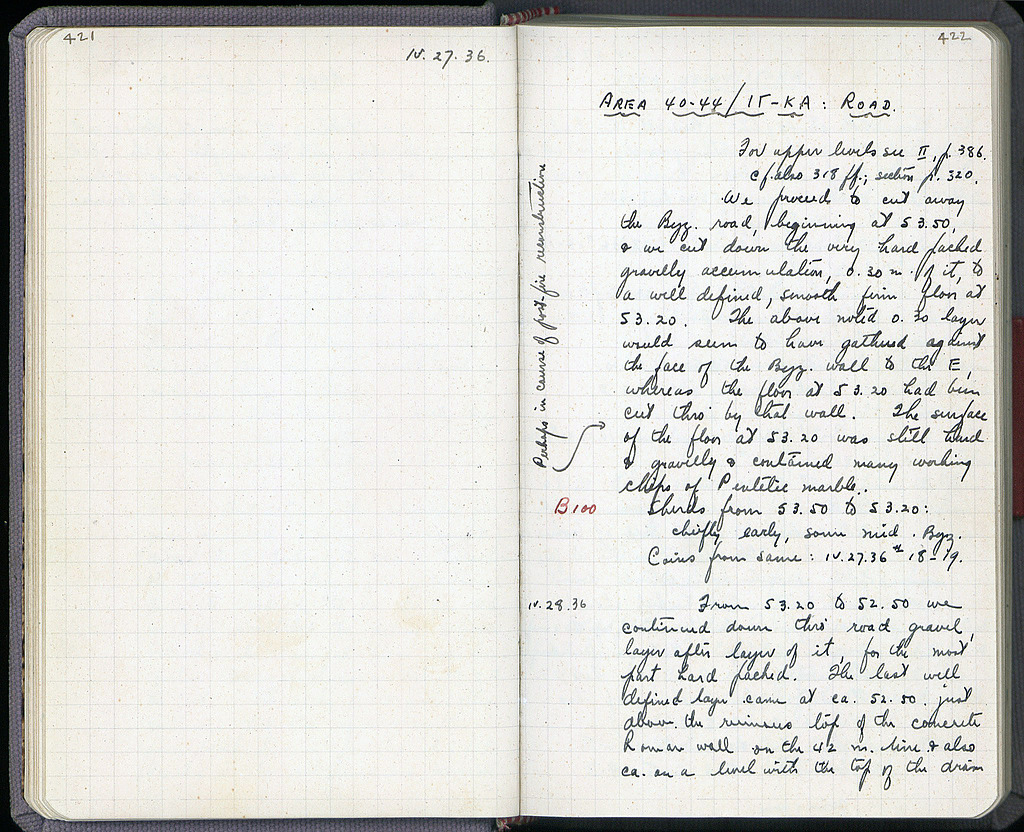 421
IV. 27. 36.
422
AREA 40-44/IΓ-KA: ROAD.
For upper levels see II, p. 386.
cf. also 318 ff.; section p. 320.
We proceed to cut away
the Byz. road, beginning at 53.50,
& we cut down the very hard packed
gravelly accumulation, 0.30 m. of it, to
a well defined, smooth firm floor at
53.20. The above noted 0.30 layer
would seem to have gathered against
the face of the Byz. wall to the E,
whereas the floor at 53.20 had been
cut thro' by that wall. The surface
of the floor at 53.20 was still hard
& gravelly & contained many working
chips of Pentelic marble.
Perhaps in course of post-fire reconstruction
B100
Sherds from 53.50 to 53.20:
chiefly early, some mid. Byz.
Coins from same: IV.27.36 # 18-19.
IV. 28. 36
From 53.20 to 52.50 we
continued down thro' road gravel,
layer after layer of it, for the most
part hard packed. The last well
defined layer came at ca. 52.50 just
above the ruinous top of the concrete
Roman wall on the 42 m. line & also
ca. on a level with the top of the drain